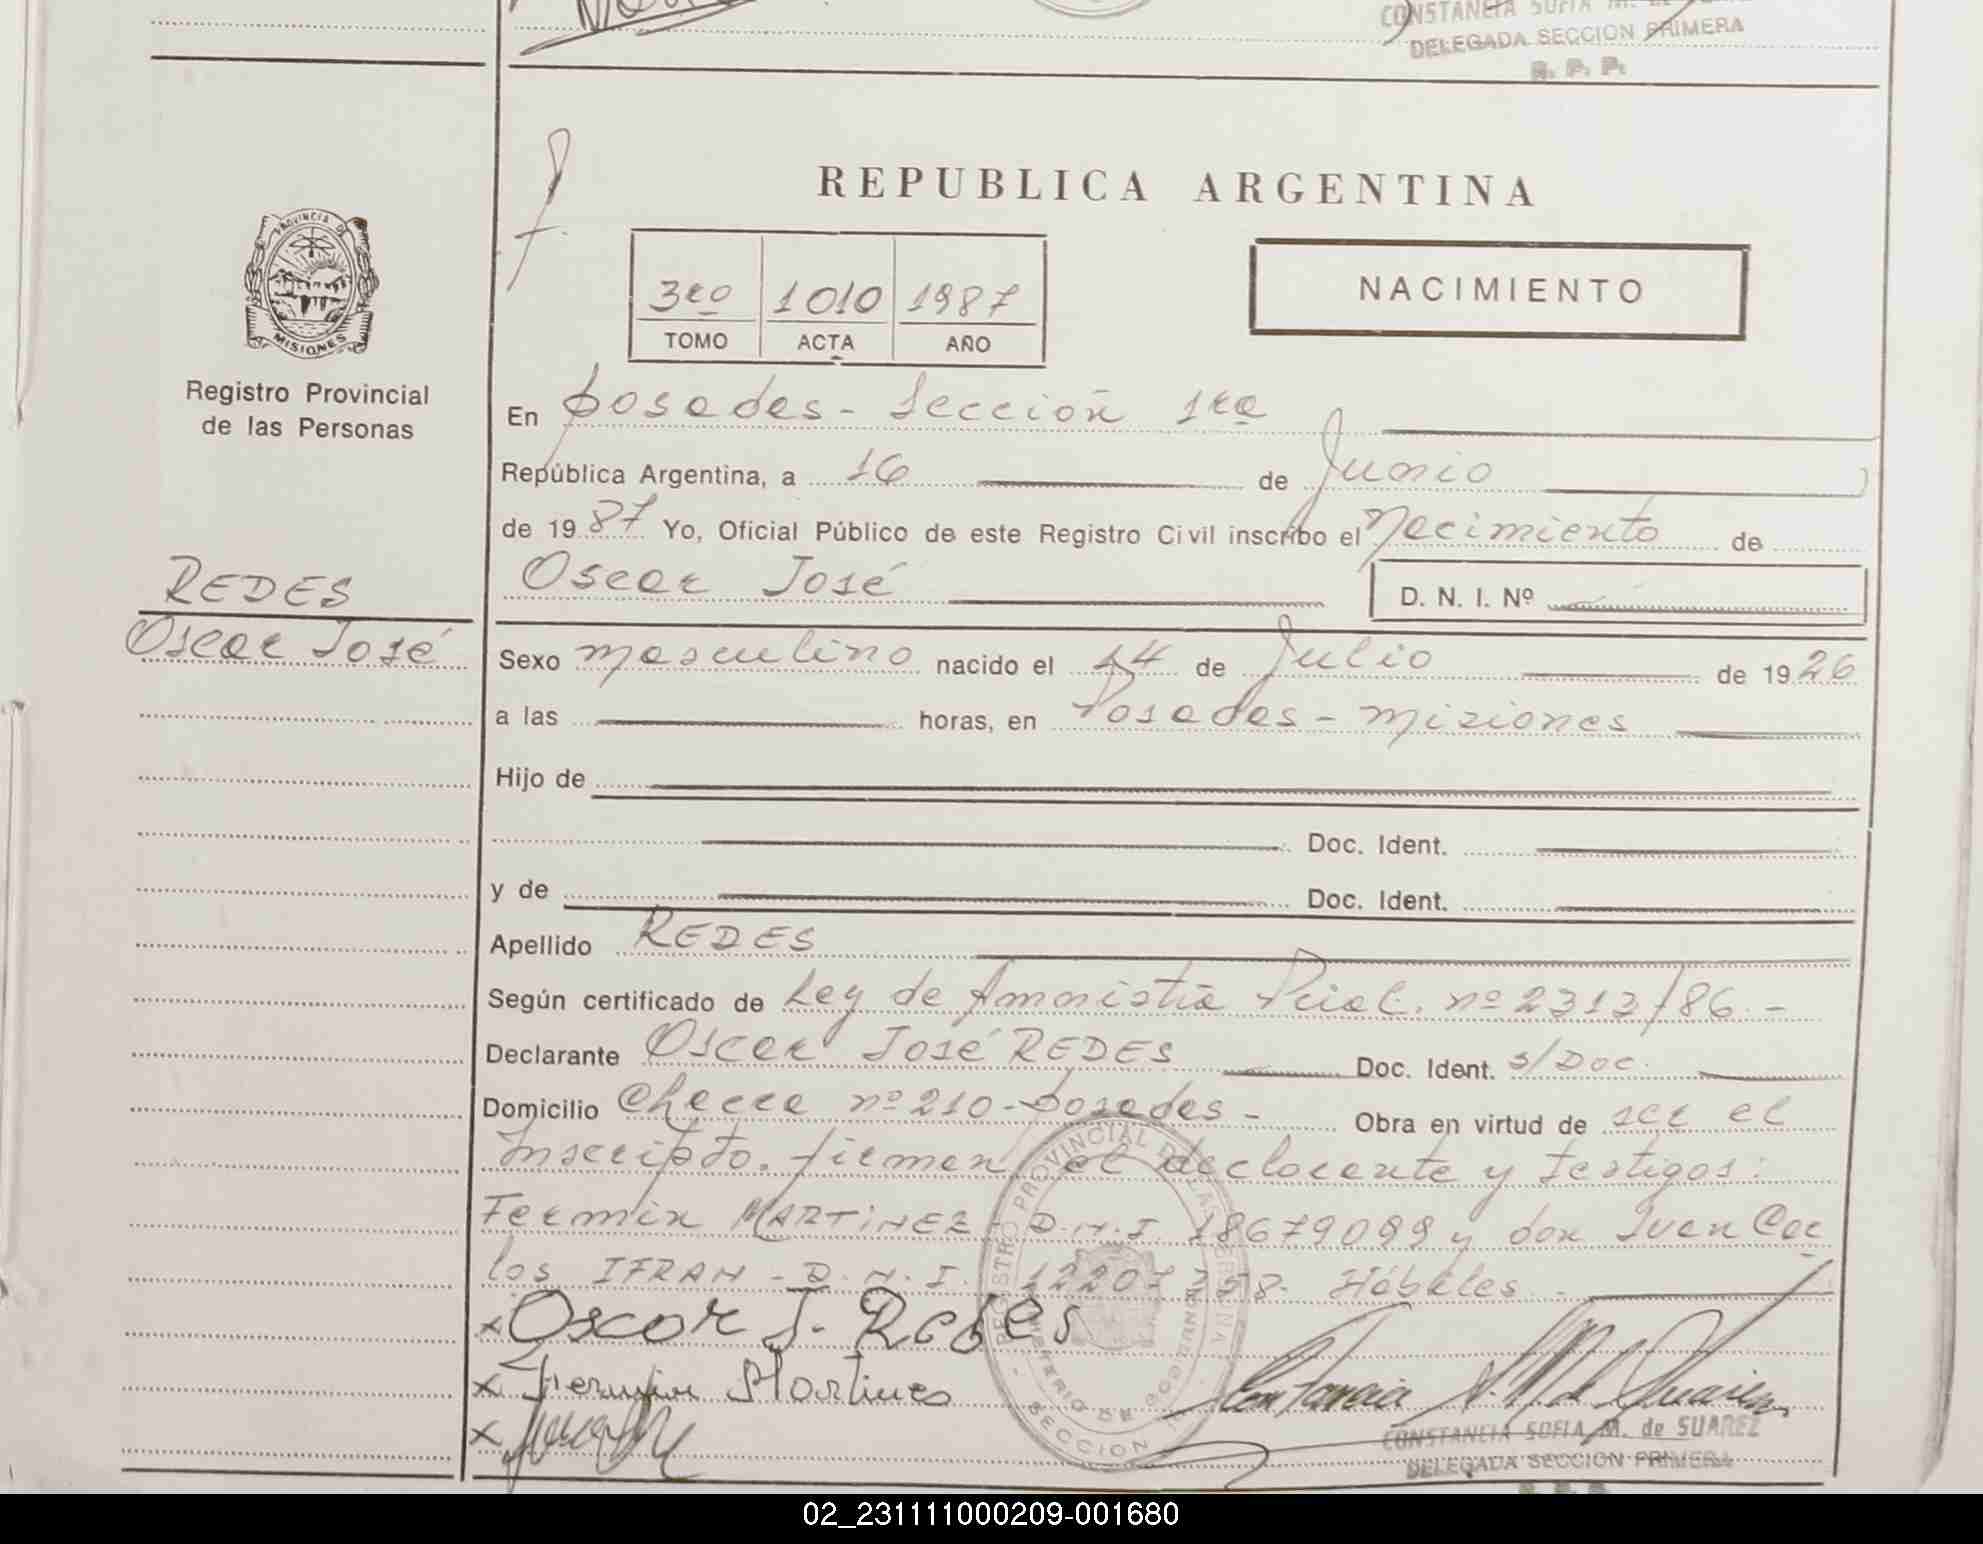 CONSTANCIA SOFIA M. de
DELEGADA SECCION PRIMERA
R. P. P.
REPUBLICA ARGENTINA
PROVINCIA DE
MISIONES
3ro 1010 1987
TOMO ACTA AÑO
NACIMIENTO
Registro Provincial
de las Personas
En Posadas - Sección 1ra
República Argentina, a 16 de Junio
de 1987 Yo, Oficial Público de este Registro Civil inscribo el Nacimiento de
Oscar José
D. N. I. Nº
REDES
Oscar José
Sexo masculino nacido el 14 de Julio de 1926
a las horas, en Posadas - Misiones
Hijo de
Doc. Ident.
y de Doc. Ident.
Apellido REDES
Según certificado de Ley de Amnistía Pcial. nº 2313/86.-
Declarante Oscar José REDES Doc. Ident. s/Doc.
Domicilio Chacra nº 210 - Posadas - Obra en virtud de ser el
Inscripto. firman el declarante y testigos:
Fermin MARTINEZ - D.N.I. 18679099 y don Juan Car
los IFRAN - D.N.I. 12207358. Hábiles.-
x Oscar J. Redes
x Fermin Martinez
x
CONSTANCIA SOFIA M. de SUAREZ
DELEGADA SECCION PRIMERA
02_231111000209-001680